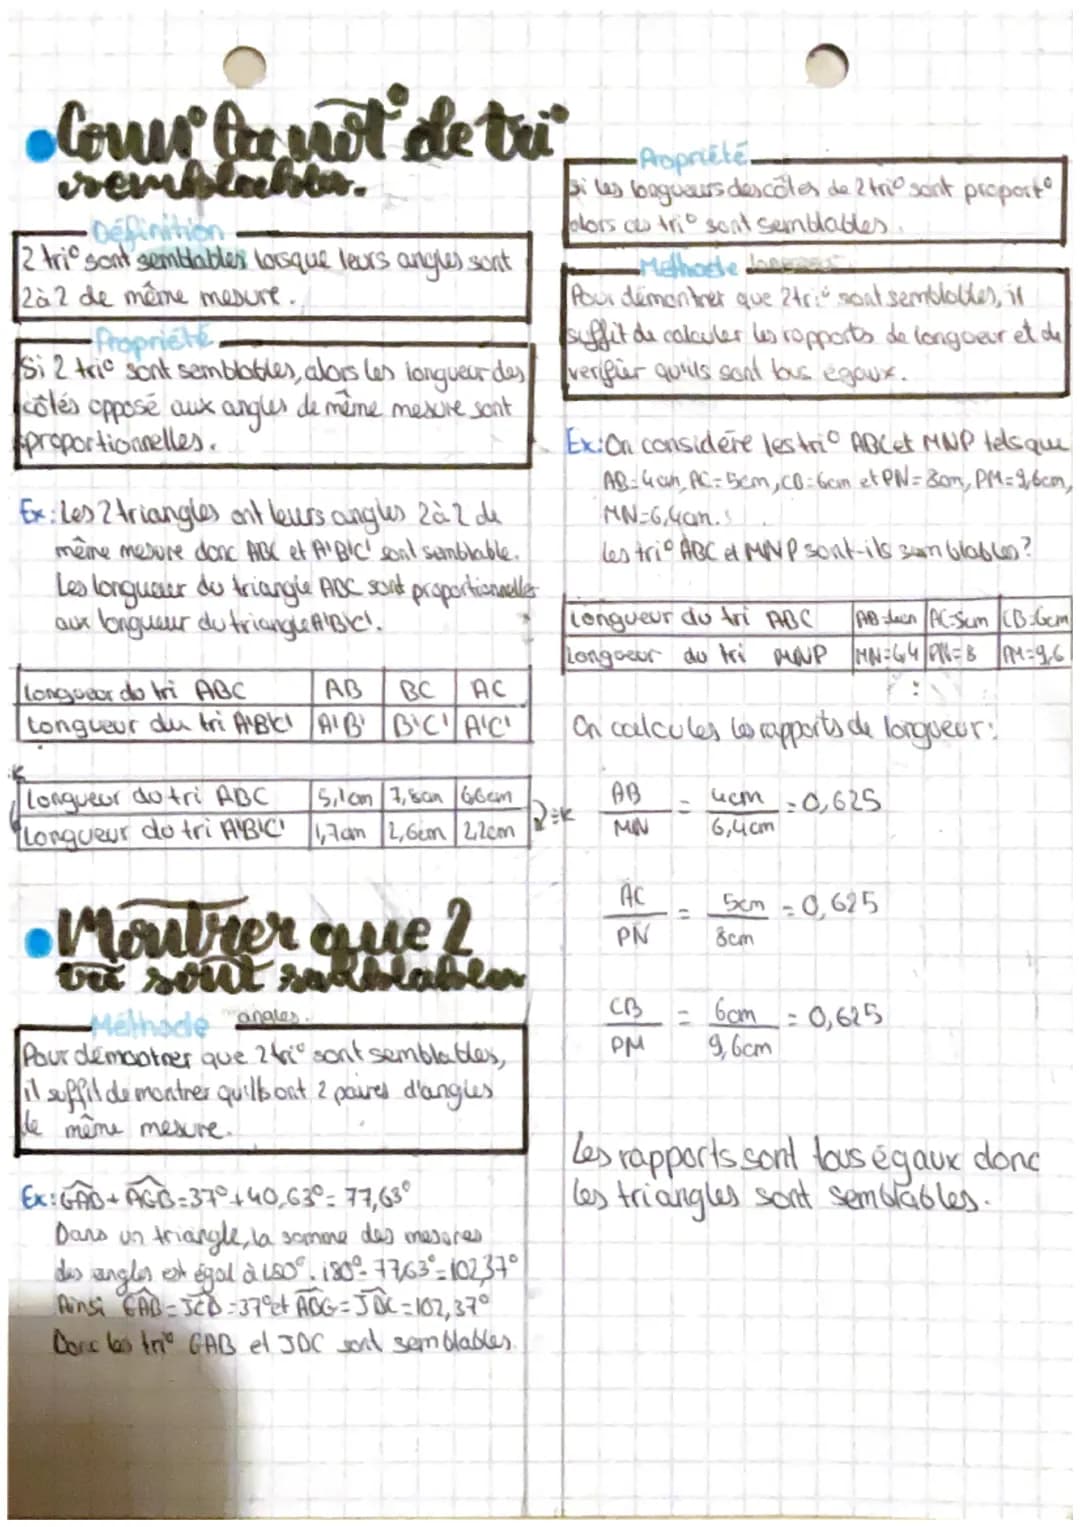 Conn° la not° de tri°
semblables.
Définition
2 tri° sont semblables lorsque leurs angles sont
2à2 de même mesure.
Propriété
Si 2 tri° sont semblables, alors les longueur des
côtés opposé aux angles de même mesure sont
proportionnelles.
Ex: Les 2 triangles ont leurs angles 2à2 de
même mesure donc ABC et A'B'C' sont semblable.
Les longueur du triangle ABC sont proportionnelles
aux longueur du triangle A'B'C'.
Longueur du tri ABC AB BC AC
Longueur du tri A'B'C' A'B' B'C' A'C'
Longueur du tri ABC 5,1cm 7,8cm 6,6cm
Longueur du tri A'B'C' 1,7cm 2,6cm 2,2cm
÷K
Montrer que 2
tri sont semblables
Méthode angles.
Pour démontrer que 2 tri° sont semblables,
il suffit de montrer qu'ils ont 2 paires d'angles
de même mesure.
Ex: GAB + AGB = 37° + 40,63° = 77,63°
Dans un triangle, la somme des mesures
des angles est égal à 180°. 180° - 77,63° = 102,37°
Ainsi GAB = JCD = 37° et ABG = JDC = 102,37°
Donc les tri° GAB et JDC sont semblables.
Propriété
Si les longueurs des côtés de 2 tri° sont proport°
alors ces tri° sont semblables.
Méthode longueur
Pour démontrer que 2 tri° sont semblables, il
suffit de calculer les rapports de longueur et de
verifier qu'ils sont tous égaux.
Ex: On considère les tri° ABC et MNP tels que
AB=4cm, AC=5cm, CB=6cm et PN=8cm, PM=9,6cm,
MN=6,4cm.
Les tri° ABC et MNP sont-ils semblables?
Longueur du tri ABC AB=4cm AC=5cm CB=6cm
Longueur du tri MNP MN=6,4 PN=8 PM=9,6
On calcules les rapports de longueur:
AB/MN = 4cm/6,4cm = 0,625
AC/PN = 5cm/8cm = 0,625
CB/PM = 6cm/9,6cm = 0,625
Les rapports sont tous égaux donc
les triangles sont semblables.